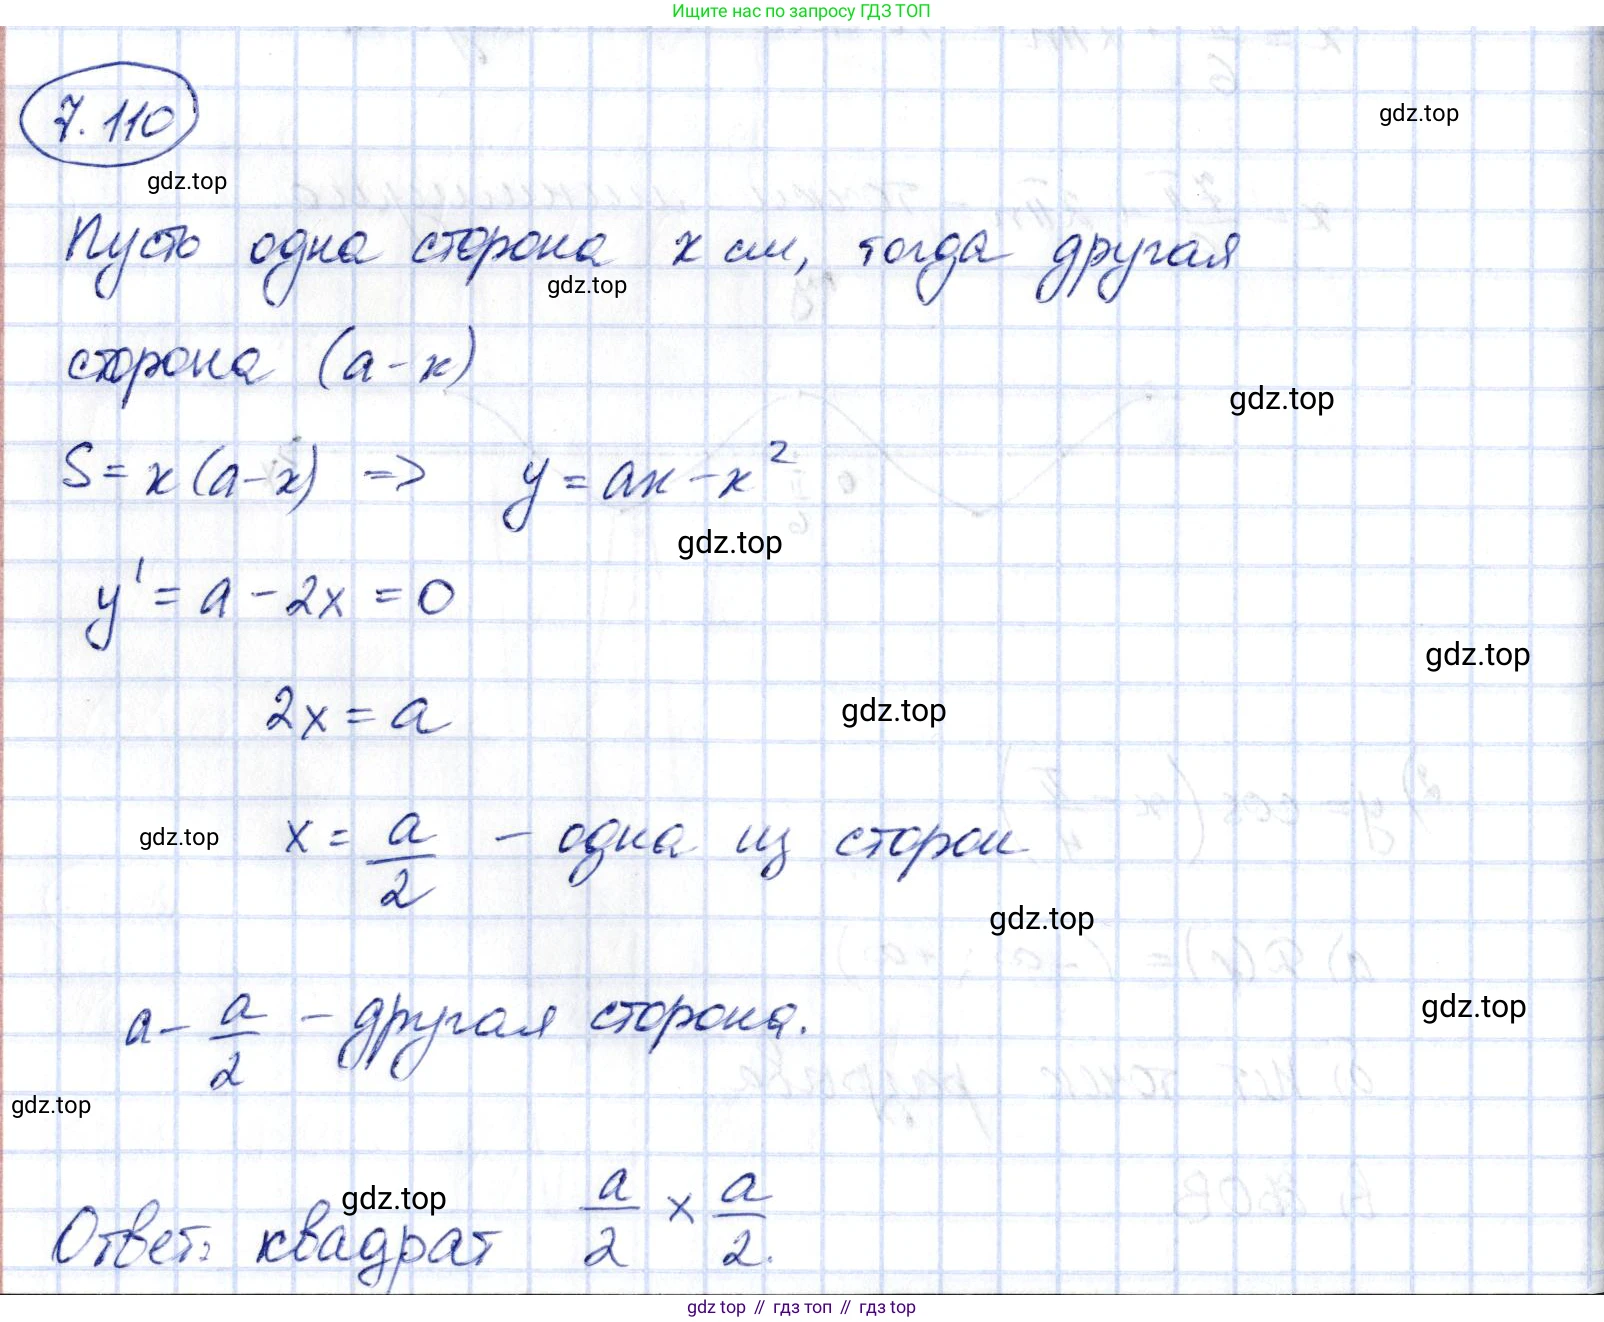 Ищите нас по запросу ГДЗ ТОП
7.110
gdz.top
gdz.top
Пусть одна сторона x см, тогда другая
gdz.top
сторона (a-x)
gdz.top
S = x(a-x) => y = ax - x²
gdz.top
y' = a - 2x = 0
gdz.top
2x = a
gdz.top
gdz.top x = a/2 - одна из сторон
gdz.top
a - a/2 - другая сторона.
gdz.top
gdz.top
gdz.top
Ответ: квадрат a/2 × a/2.
gdz top // гдз топ // гдз top